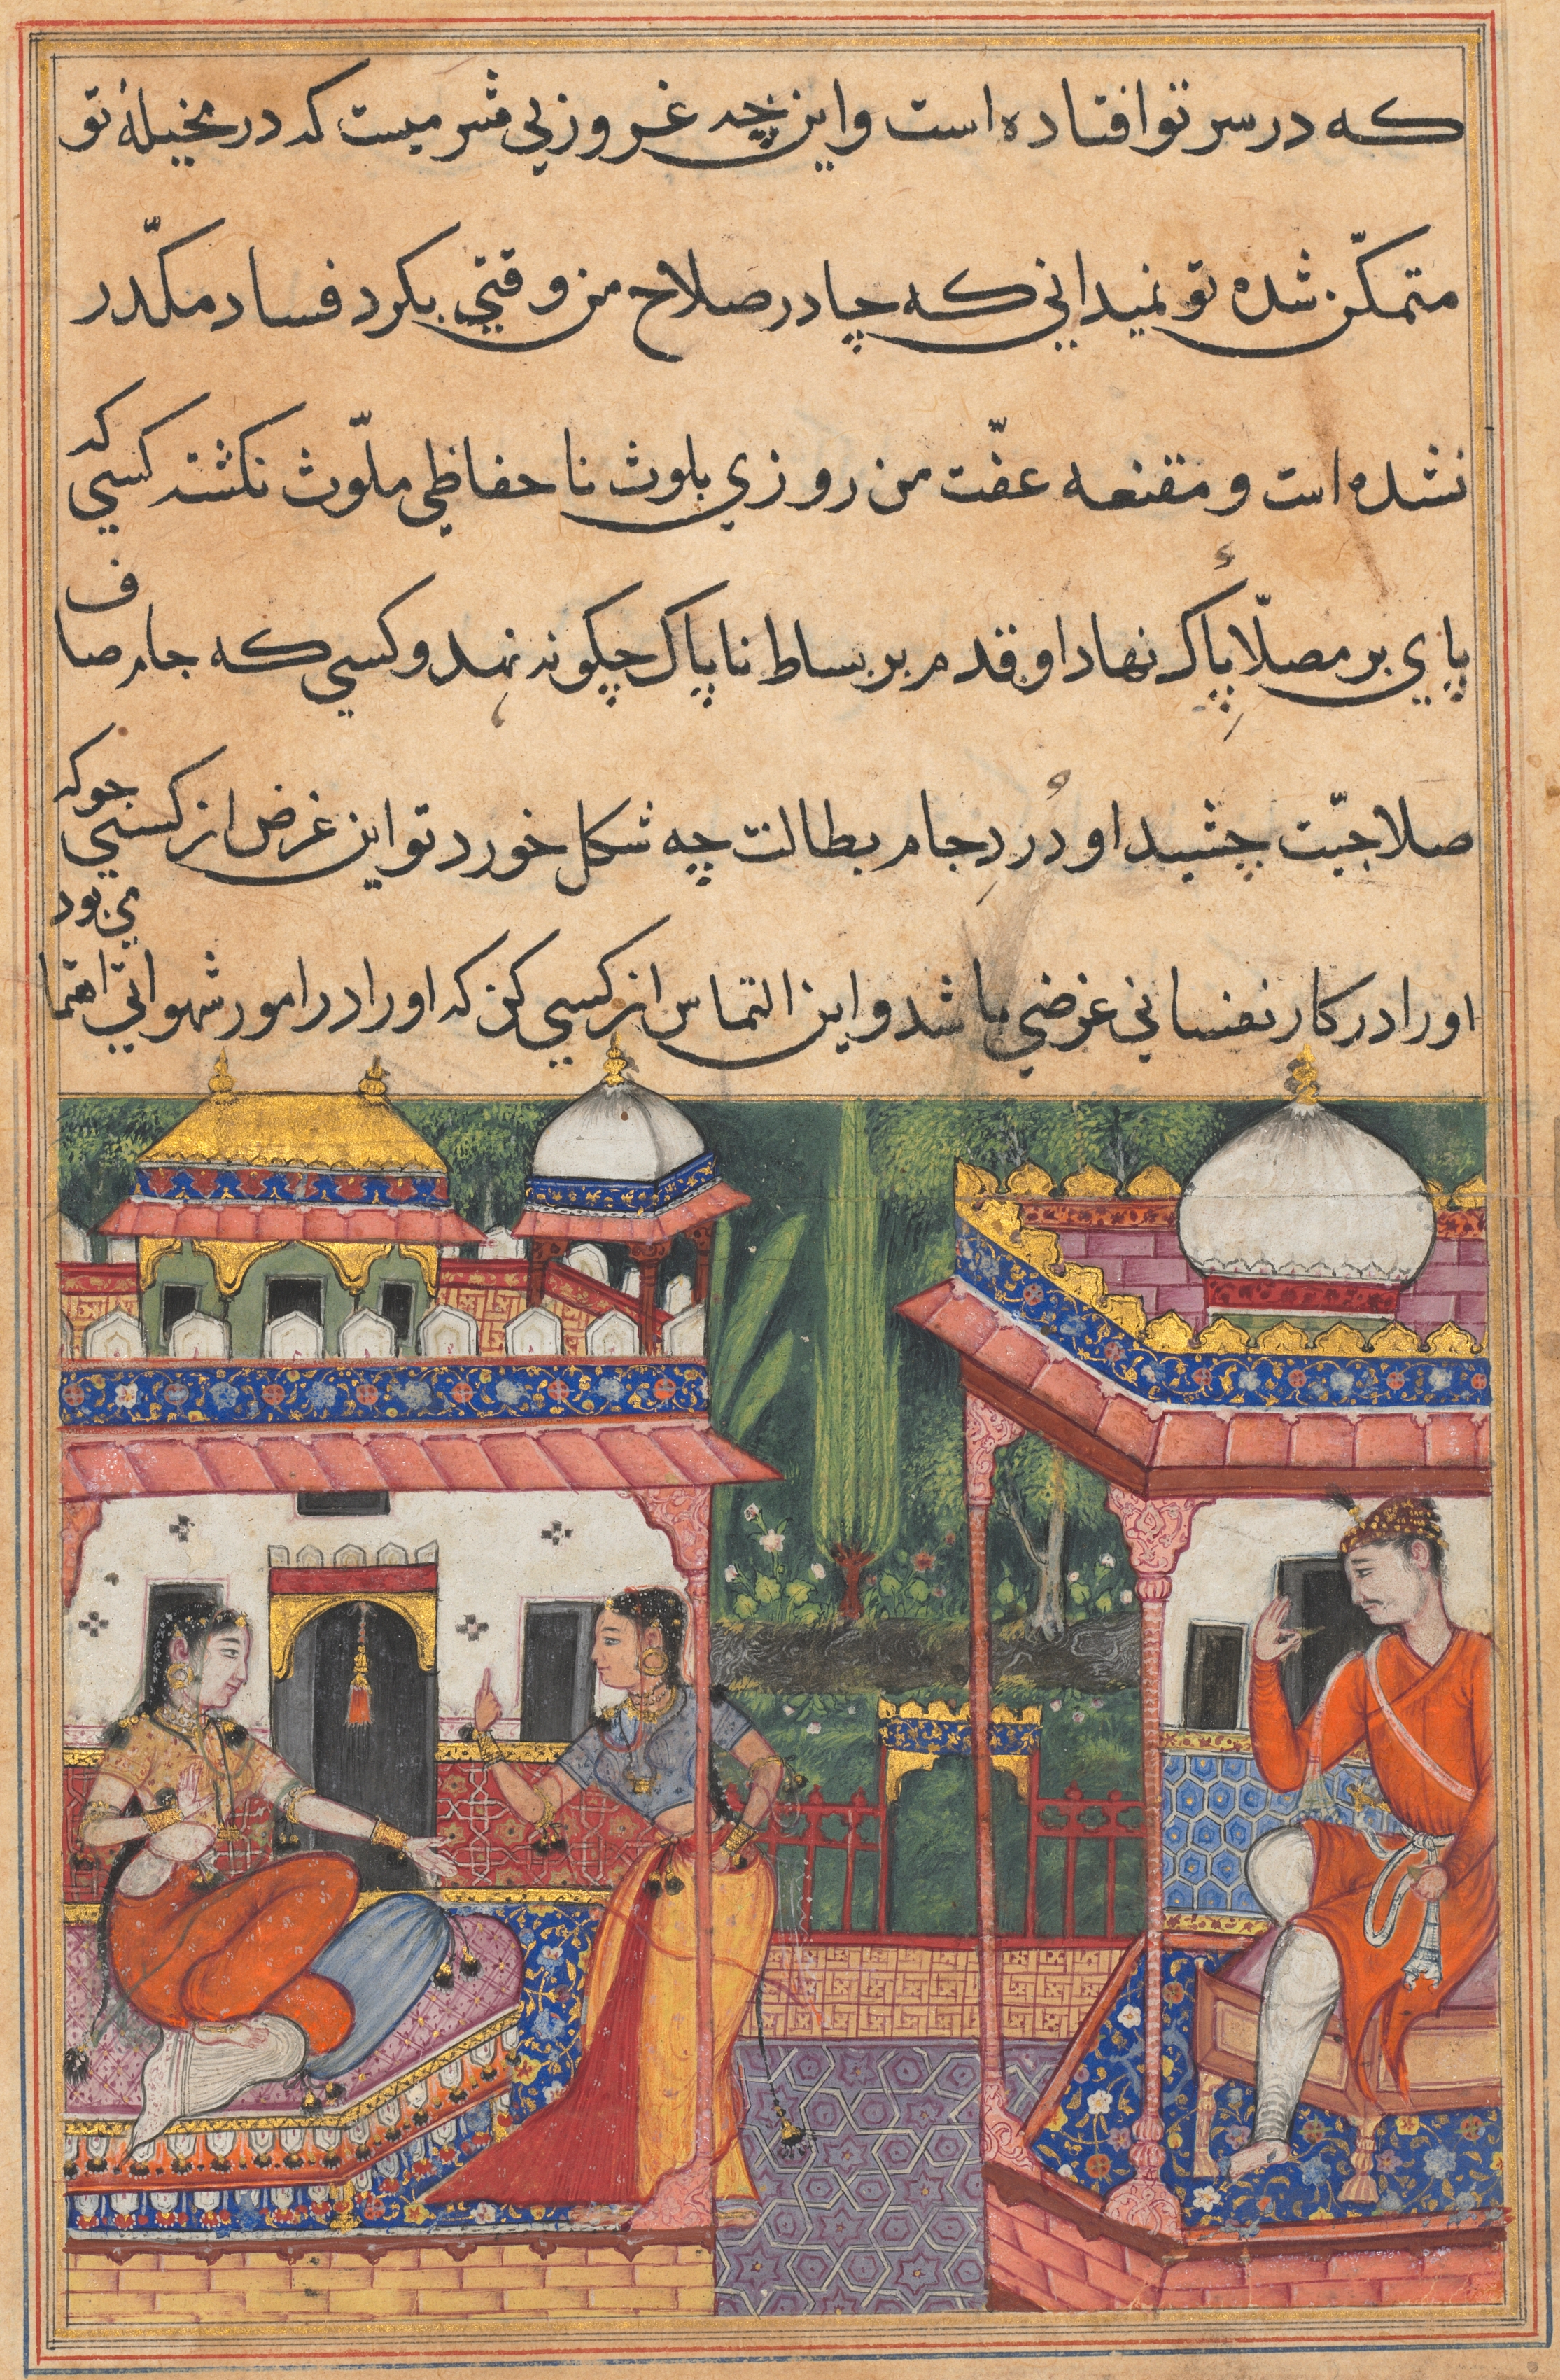 که در سر تو افتاده است و این چه غرور و بی شرمیست که در مخیلهٔ تو
متمکّن شده تو نمیدانی که چادر صلاح من وقتی بکرد فساد مکدّر
نشده است و مقنعه عفّت من روزی بلوث نا حفاظی ملوّث نکشته کسی که
پای بر مصلّاء پاک نهاد او قدم بر بساط ناپاک چکونه نهد و کسی که جام صاف
صلاحیّت چشید او دُردِ جام بطالت چه شکل خورد تو این غرض از کسی جو که
او را در کار نفسانی غرضی باشد و این التماس از کسی کن که او را در امور شهوانی اهتمامی بود